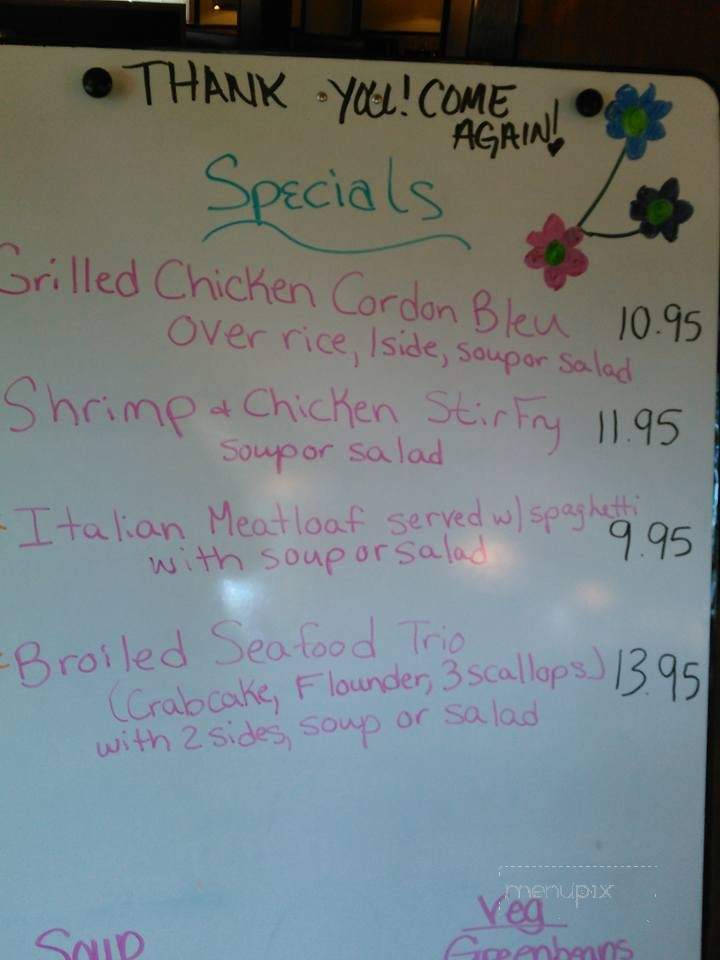 THANK YOU! COME
AGAIN!
Specials
Grilled Chicken Cordon Bleu 10.95
Over rice, 1 side, soup or salad
Shrimp & Chicken Stir Fry 11.95
soup or salad
Italian Meatloaf served w/ spaghetti
with soup or salad 9.95
Broiled Seafood Trio
(Crabcake, Flounder, 3 scallops) 13.95
with 2 sides, soup or salad
menupix
Veg
Soup Greenbeans